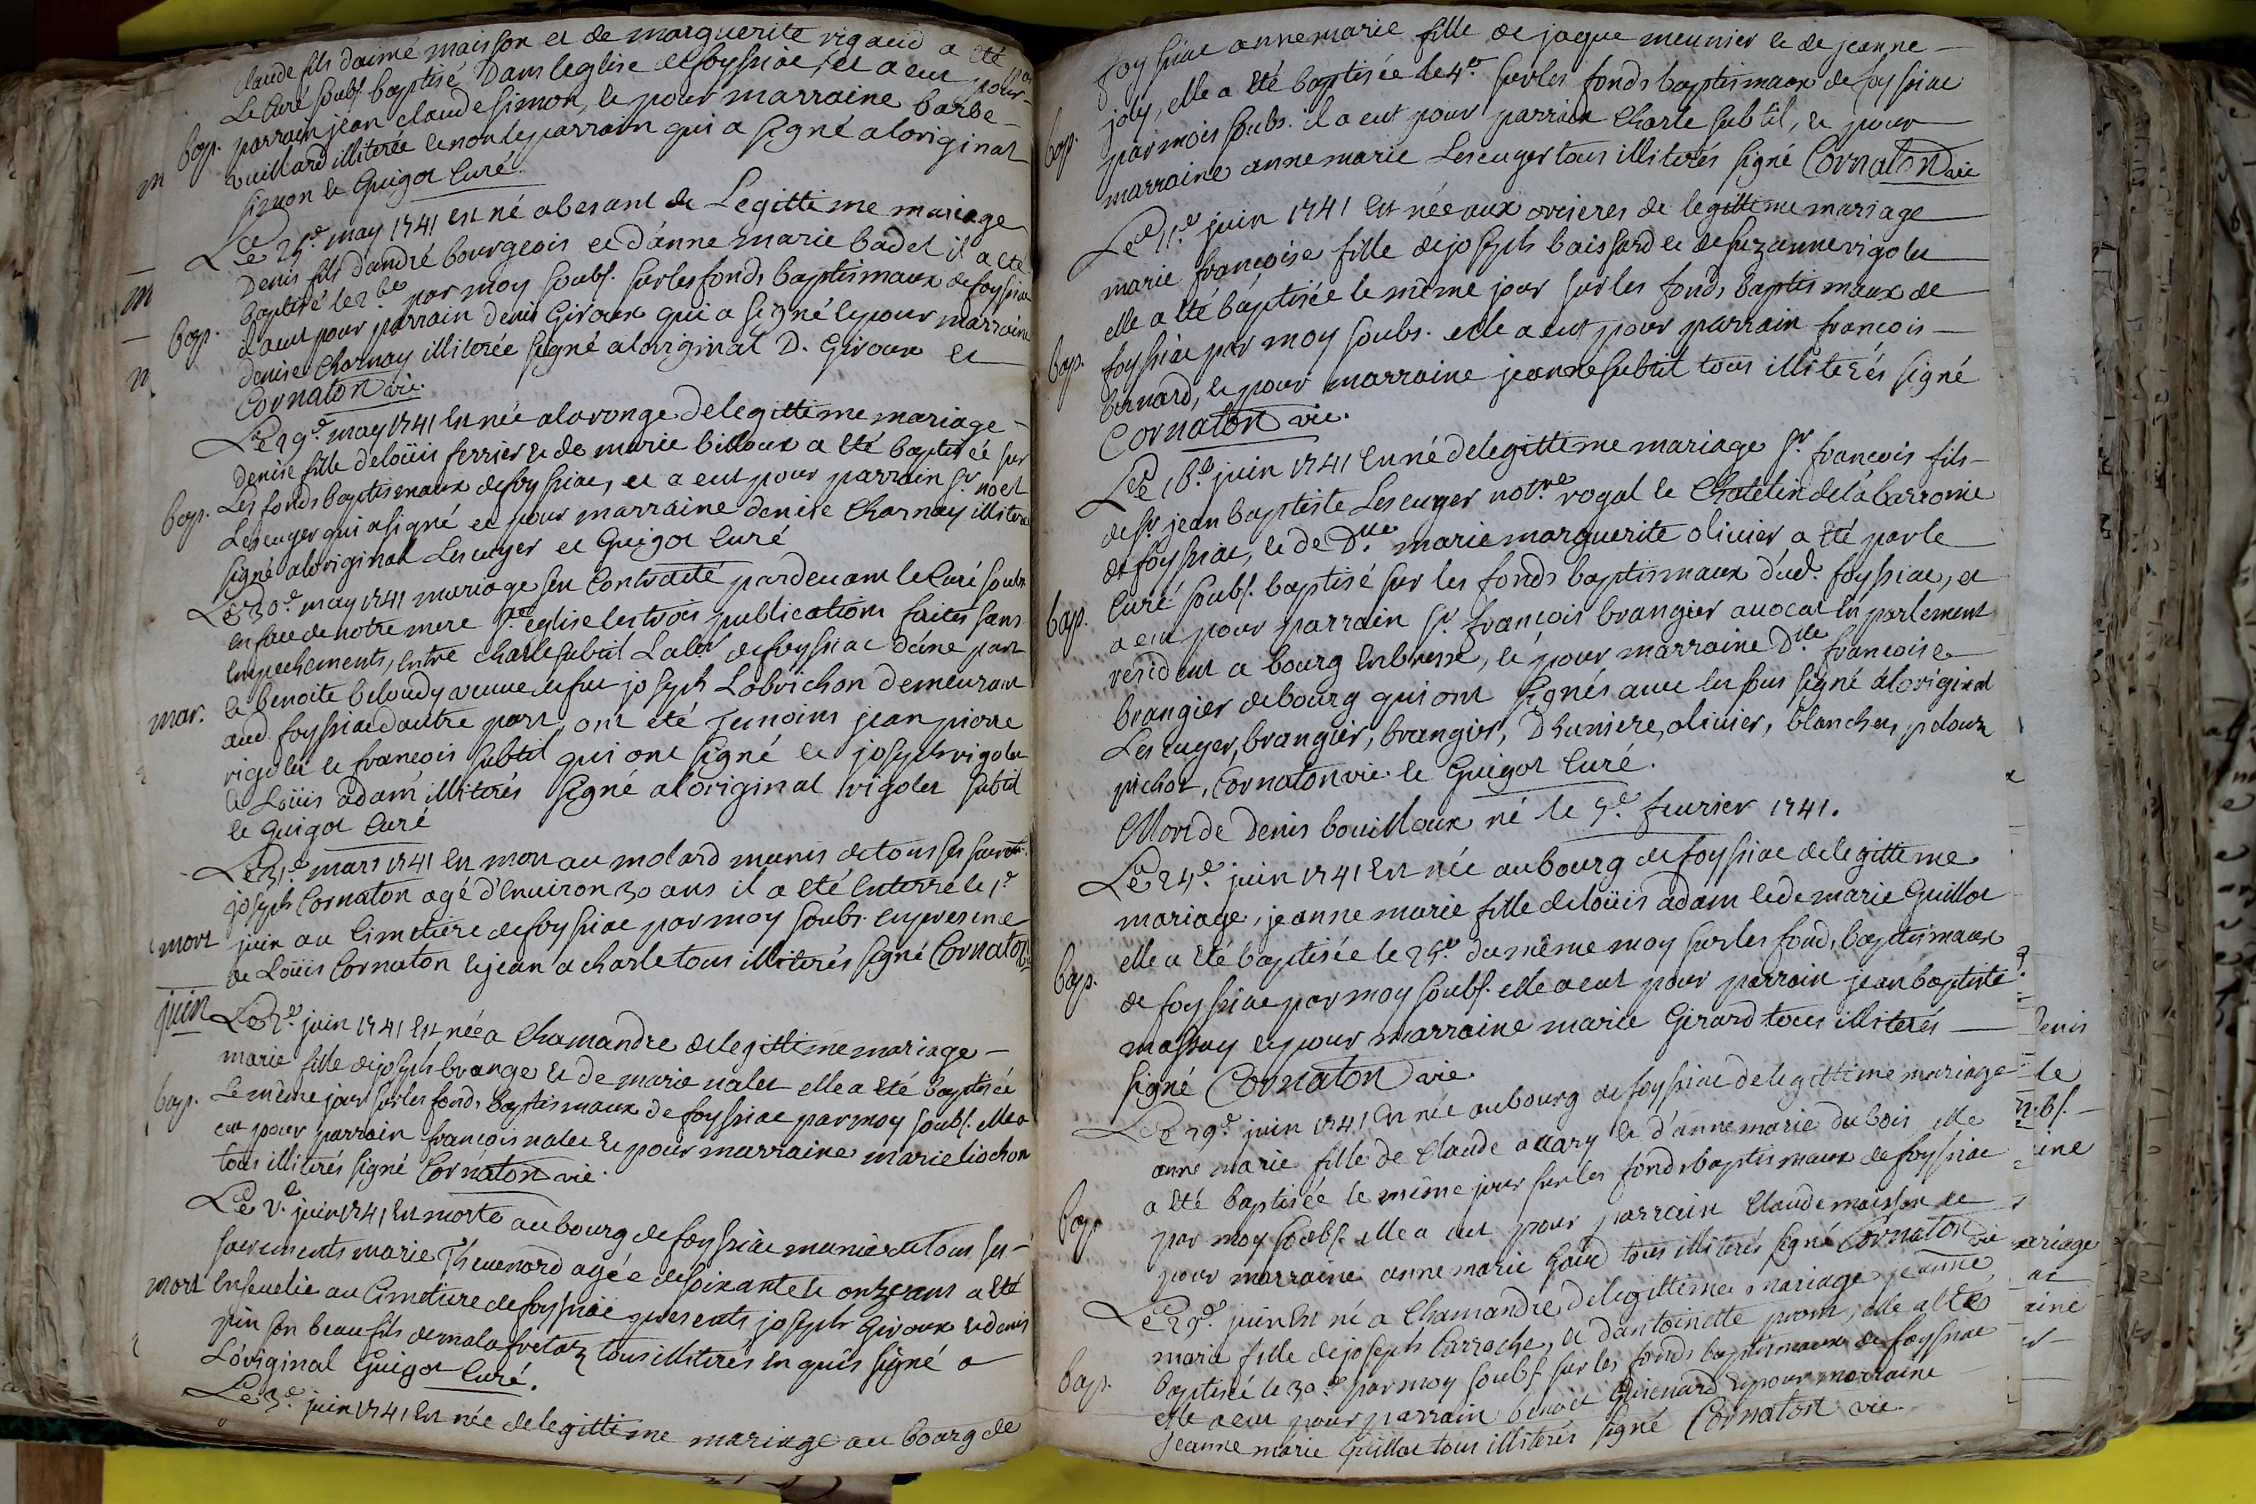 Claude fils daimé maisson et de marguerite rigaud a été par
Le Curé soubs. baptisé Dans leglise de foyssiac, et a eut pour
bap. parrain jean claude simon, et pour marraine barbe
vuillard illiterée et non le parrain qui a signé aloriginal
simon et Guigot Curé.
Le 25e. may 1741 est né abesant de Legittime mariage
Denis fils dandré bourgeois et d'anne marie badet il a été
baptisé le par moy soubs. sur les fonds baptismaux de foyssiac
bap. il a eut pour parrain denis Giroux qui a signé et pour marraine
denise Charnay illiterée signé aloriginal D. Giroux et
Cornaton vic.
Le 29e. may 1741 est née alaronge de legittime mariage
denise fille de loüis ferrier et de marie billoux a été baptisée sur
bap. Les fonds baptismaux de foyssiac, et a eut pour parrain Sr. noel
Lescuyer qui a signé et pour marraine denise Charnay illiterée
signé aloriginal Lescuyer et Guigot Curé
Le 30e. may 1741 mariage sen Contracté pardevant le Curé soubs.
en face de notre mere Ste eglise les trois publications faites sans
Empechements, entre charle subtil Labr. de foyssiac d'une part
mar. et benoite beloudy veuve de feu joseph Lobrichon demeurant
aud. foyssiac dautre part, ont été Temoins jean pierre
rigolet et francois subtil qui ont signé et joseph rigolet
et Loüis adam illiterés signé aloriginal rigolet subtil
et Guigot Curé
Le 31e. mars 1741 est mort au molard munis de tous ses sacrem.
joseph Cornaton agé d'environ 30 ans il a été Enterré le 1e
mort juin au Cimetiere de foyssiac par moy soubs. en presence
de Loüis Cornaton et jean a charle tous illiterés signé Cornaton
juin
Le 2e. juin 1741 est née a Chamandre de legittime mariage
marie fille de joseph brange et de marie nalet elle a été baptisée
bap. Le même jour sur les fonds baptismaux de foyssiac par moy soubs. elle a
eut pour parrain francois nalet et pour marraine marie liochon
tous illiterés signé Cornaton vic.
Le juin 1741 est morte au bourg de foyssiac munie de tous ses
sacrements marie Thevenard agée de soixante et onze ans a été
mort Ensevelie au Cimetiere de foyssiac presents joseph Giroux et denis
son beau fils de malafretaz tous illiteres Enquis signé a
L'original Guigot Curé.
Le 3e. juin 1741 est née de legittime mariage au bourg de
foyssiac anne marie fille de jaque meunier et de jeanne
joly, elle a été baptisée le 4e sur les fonds baptismaux de foyssiac
bap. par mois soubs. il a eut pour parrain Charle subtil, et pour
marraine anne marie Lescuyer tous illiterés signé Cornaton vic
Le juin 1741 est née aux orcieres de legittime mariage
marie françoise fille de joseph baissard et de suzanne rigolet
elle a été baptisée le même jour sur les fonds baptismaux de
bap. foyssiac par moy soubs. elle a eut pour parrain francois
bernard, et pour marraine jeanne subtil tous illiterés signé
Cornaton vic.
Le juin 1741 est né de legittime mariage Sr. francois fils
de Sr. jean baptiste Lescuyer notre. royal et Chatelin de la barronie
de foyssiac, et de Dlle. marie marguerite olivier a été par le
bap. Curé soubs. baptisé sur les fonds baptismaux dud. foyssiac, et
a eut pour parrain Sr. françois brangier avocat En parlement
resident a bourg Enbresse, et pour marraine Dlle francoise
brangier de bourg qui ont signés signé aloriginal
Lescuyer, brangier, brangier, olivier, blanchet,
pichot, Cornaton vic. et Guigot Curé.
Mort de Denis bouilloux né le 5e. fevrier 1741.
Le 24e. juin 1741 est née au bourg de foyssiac de legittime
mariage, jeanne marie fille de loüis adam et de marie Guillot
bap. elle a été baptisée le 25e. du même moy sur les fonds baptismaux
de foyssiac par moy soubs. elle a eut pour parrain jean baptiste
massuy et pour marraine marie Girard tous illiterés
signé Cornaton vic.
Le 29e. juin 1741 est née au bourg de foyssiac de legittime mariage
anne marie fille de Claude et d'anne marie dubois elle
bap. a été baptisée le même jour sur les fonds baptismaux de foyssiac
par moy soubs. elle a eut pour parrain Claude maisson et
pour marraine anne marie tous illiterés signé Cornaton vic
Le 29e. juin est né a Chamandre de legittime mariage jeanne
marie fille de joseph Carroche, et dantoinette elle a été
bap. baptisée le 30e. par moy soubs. sur les fonds baptismaux de foyssiac
elle a eut pour parrain benoit et pour marraine
jeanne marie Guillot tous illiterés signé Cornaton vic.